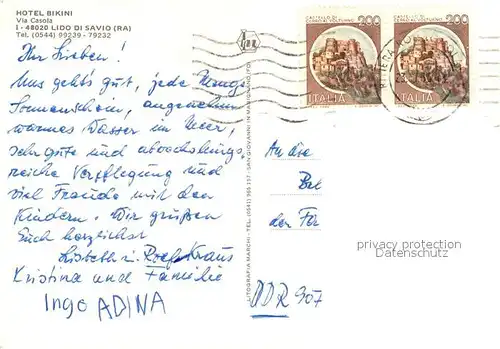 HOTEL BIKINI
Via Casola
I - 48020 LIDO DI SAVIO (RA)
Tel. (0544) 99239 - 79232
Ihr Lieben!
Uns geht's gut, jede Menge
Sonnenschein, angenehm
warmes Wasser im Meer,
sehr gute und abwechslungs-
reiche Verpflegung und
viel Freude mit den
Kindern. Wir grüßen
Euch herzlichst
Lisbeth u. Rolf Kraus
Kristina und Familie
Ingo ADINA
LITOGRAFIA MARCHI - TEL. (0541) - SAN GIOVANNI IN MARIGNANO (FO)
CASTELLO DI
200
ITALIA
CASTELLO DI
200
ITALIA
An die
der
privacy protection
Datenschutz
DDR 907